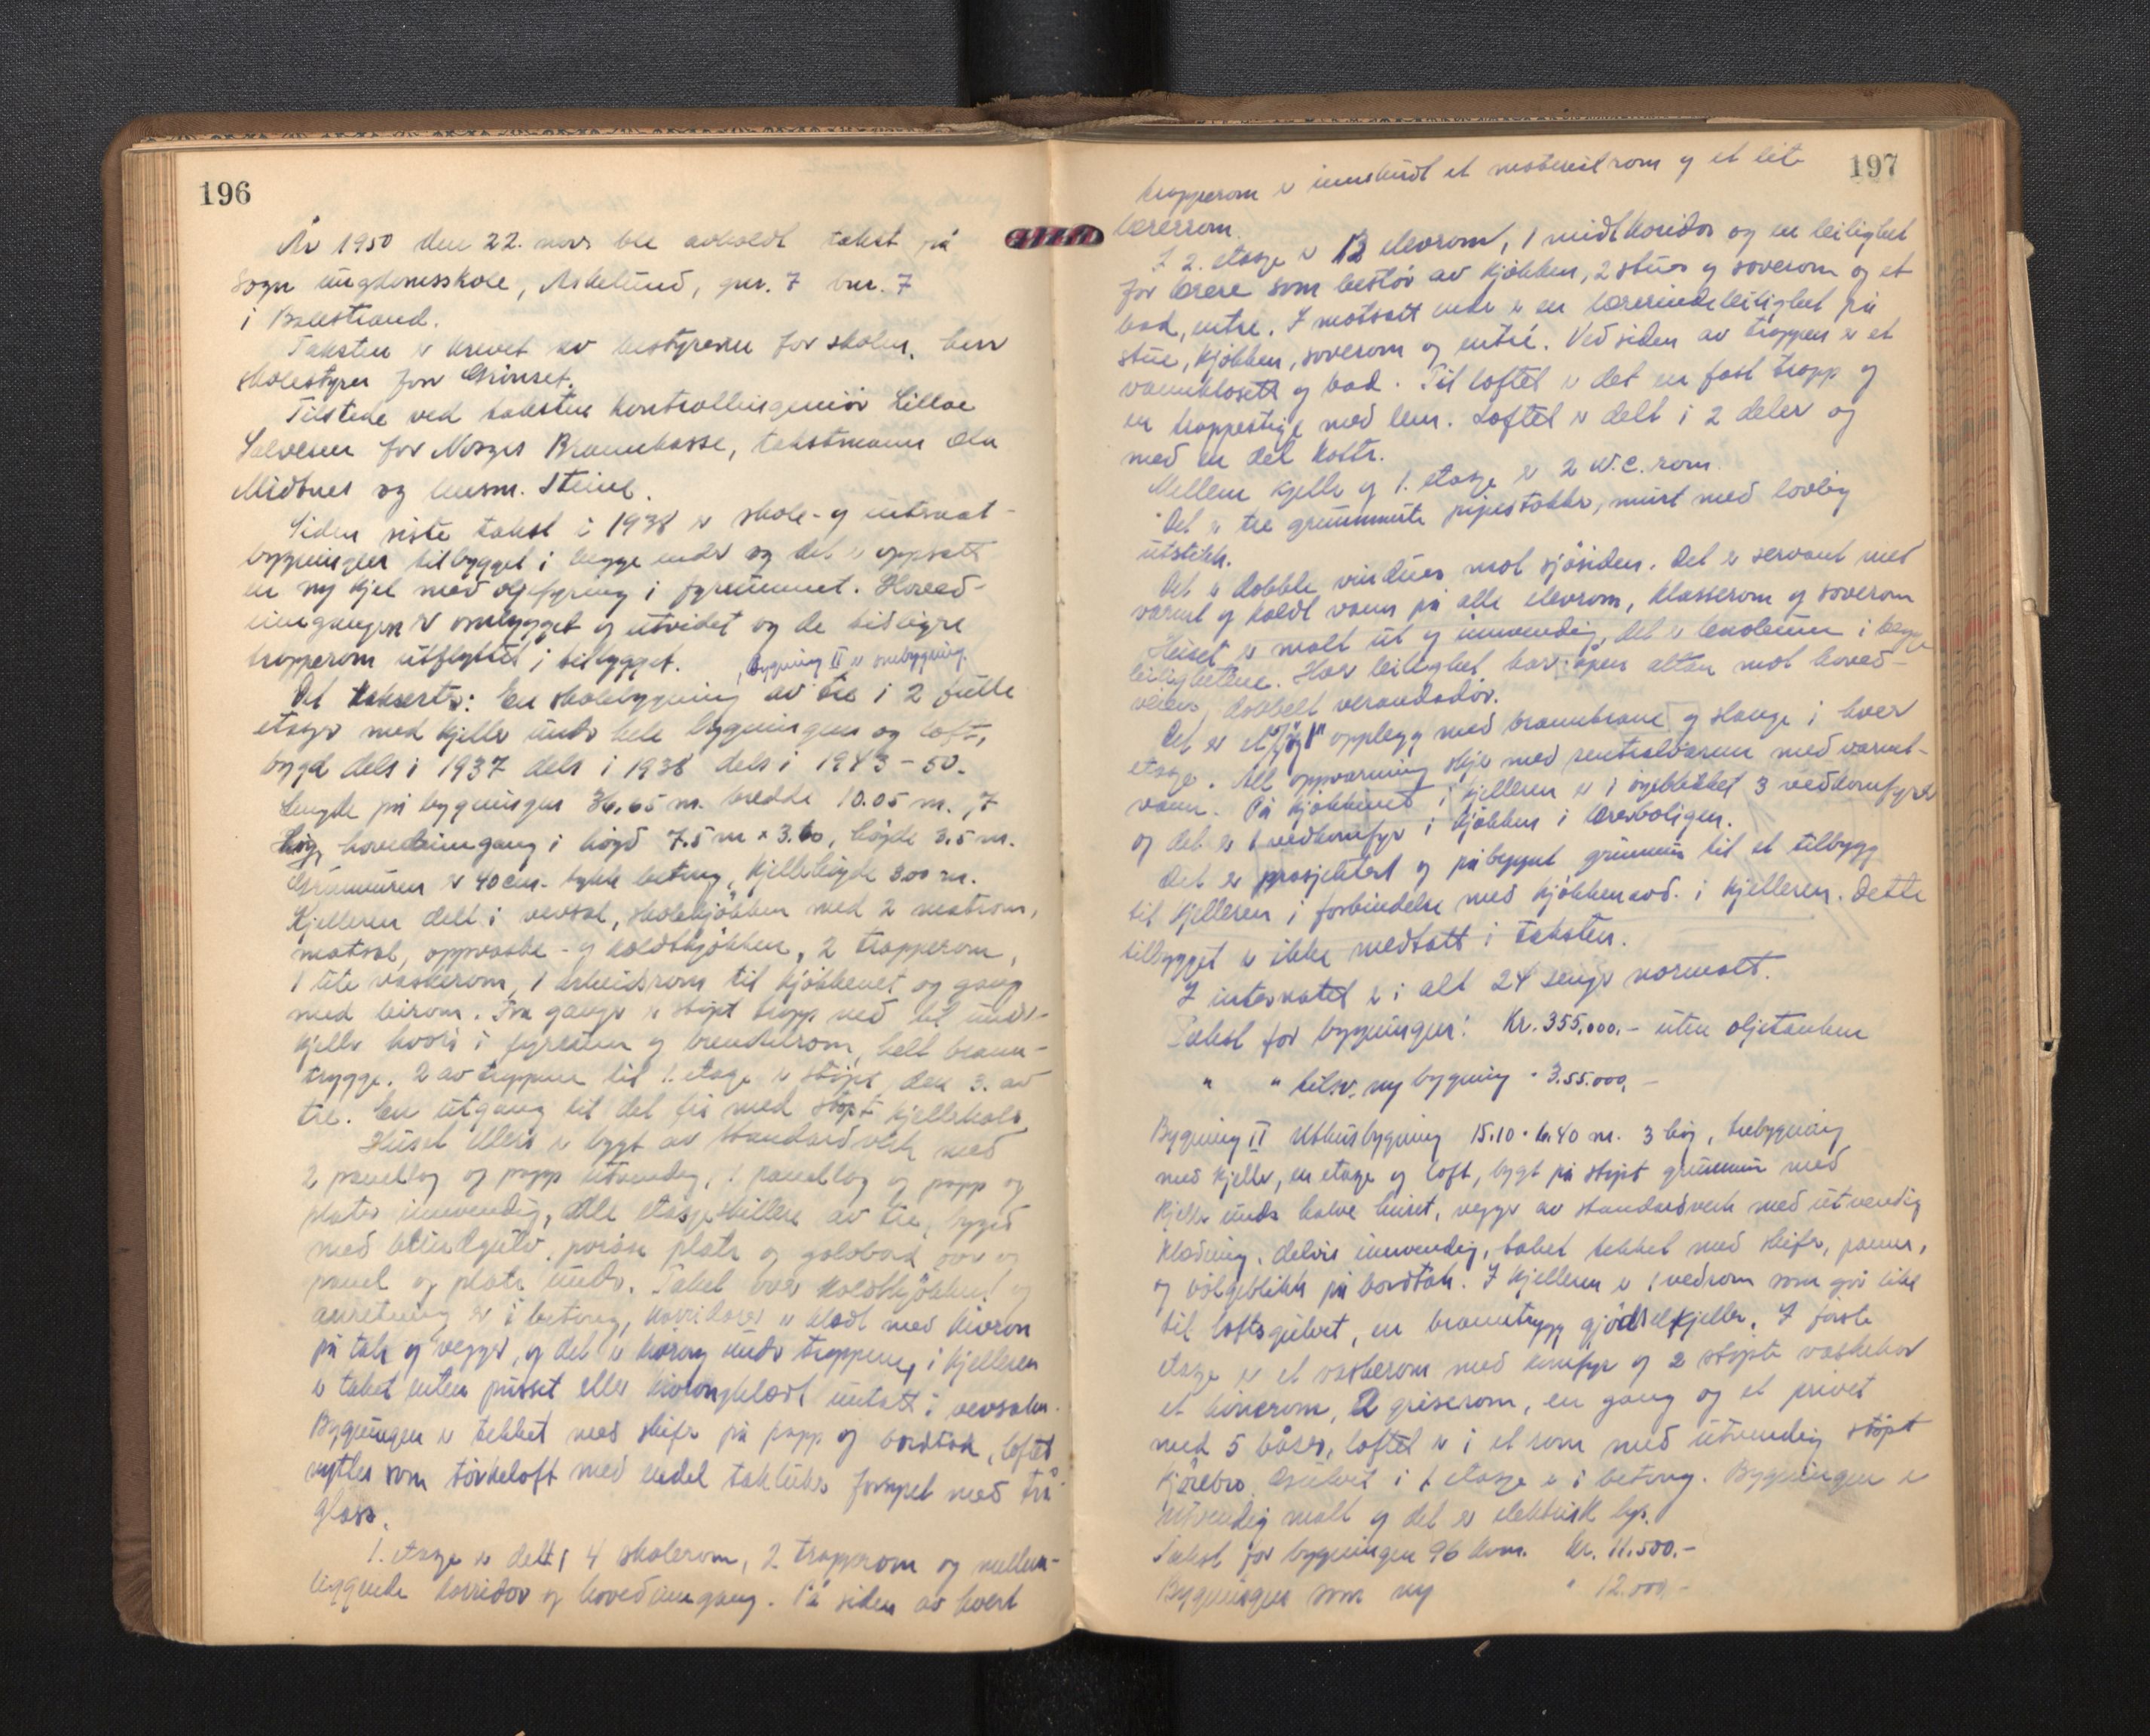 196
År 1950 den 22. novr ble avholdt takst på
Sogn ungdomsskole, Askelund, gnr. 7 bnr. 7
i Balestrand.
Taksten er krevet av bestyreren for skolen, herr
skolestyrer Grinset.
Tilstede ved taksten kontrollingeniør Lilloe
Salvesen for Norges Brannkasse, takstmann Ola
Midtnes og lensm. Steine.
Siden siste takst i 1938 er skole- og internat-
bygningen tilbygget i begge ender og det er oppsatt
en ny kjel med oljefyring i fyrrummet. Hoved-
inngangen er ombygget og utvidet og de tidligere
trapperom utflyttet i tilbygget. Bygning II er ombygning.
Det takseres: En skolebygning av tre i 2 fulle
etasjer med kjeller under hele bygningen og loft,
bygd dels i 1937 dels i 1938 dels i 1943-50.
Lengde på bygningen 36,65 m. bredde 10.05 m., 7
høg, hovedinngang i høgd 7.5 m x 3.60, høgde 3.5 m.
Grunnmuren er 40 cm. tykk betong, kjellerhøgde 3.00 m.
Kjelleren delt i vevsal, skolekjøkken med 2 matrom,
matsal, oppvaske- og koldtkjøkken, 2 trapperom,
1 lite vaskerom, 1 arbeidsrom til kjøkkenet og gang
med birom. Fra gangen er støpt trapp ned til under-
kjeller hvori i fyrrum og brenselrom, helt brann-
trygge. 2 av trappene til 1. etasje er støpt, den 3. av
tre. En utgang til det fri med støpt kjellerhals
Huset ellers er bygt av standardverk med
2 panellag og papp utvendig, 1 panellag og papp og
plater innvendig, alle etasjeskillere av tre, bygd
med blindgulv, porøse plater og golvbord over og
panel og plater under. Taket over koldtkjøkken og
anretning er i betong, korridorer er kledt med
på tak og vegger, og det er under trappene, i kjelleren
er taket enten pusset eller untatt i vevsalen.
Bygningen er tekket med skifer på papp og bordtak, loftet
nyttes som tørkeloft med endel takluker forsynet med trå
glass.
1. etasje er delt i 4 skolerom, 2 trapperom og mellem-
liggende korridor og hovedinngang. På siden av hvert
197
trapperom er innskudt et materialrom og et lite
lærerrom.
I 2. etasje er 12 elevrom, 1 midtkoridor og en leilighet
for lærere som består av kjøkken, 2 stuer og soverom og et
bad, entre. I motsatt ende er en lærerindeleilighet på
stue, kjøkken, soverom og entré. Ved siden av trappen er et
vannklosett og bad. Til loftet er det en fast trapp og
en trappestige med lem. Loftet er delt i 2 deler og
med en del kott.
Mellem kjeller og 1. etasje er 2 W.C. rom.
Det er tre grunnmurte pipestokker, murt med lovlig
utstikk.
Det er dobble vinduer mot sjøsiden. Det er servant med
varmt og koldt vann på alle elevrom, klasserom og soverom
Huset er malt ut og innvendig, det er linoleum i begge
leilighetene. Hver leilighet har åpen altan mot hoved-
veien, dobbelt verandadør.
Det er et opplegg med brannkrane og slange i hver
etasje. All oppvarming skjer med sentralvarme med varmt-
vann. På kjøkkenet i kjelleren er i øyeblikket 3 vedkomfyrer
og det er 1 vedkomfyr i kjøkken i lærerboligen.
Det er prosjektert og påbegynt grunnmur til et tilbygg
til kjelleren i forbindelse med kjøkkenavd. i kjelleren. Dette
tilbygget er ikke medtatt i taksten.
I internatet er i alt 24 senger normalt.
Takst for bygningen: Kr. 355.000.- uten oljetanken
" " tilsv. ny bygning " 3.55.000,-
Bygning II Uthusbygning 15.10 · 6.40 m. 3 høg, trebygning
med kjeller, en etasje og loft, bygt på støpt grunnmur med
kjeller under halve huset, vegger av standardverk med utvendig
kledning, delvis innvendig, taket tekket med skifer, panner,
og bølgeblikk på bordtak. I kjelleren er 1 vedrom som går like
til loftsgulvet, en branntrygg gjødselkjeller. I første
etasje er et vaskerom med komfyr og 2 støpte vaskekar
et hønserom, 2 griserom, en gang og et privet
med 5 båser, loftet er i et rom med utvendig støpt
kjørebro. Gulvet i 1 etasje er i betong. Bygningen er
utvendig malt og det er elektrisk lys.
Takst for bygningen 96 kvm. Kr. 11.500.-
Bygningen som ny " 12.000,-